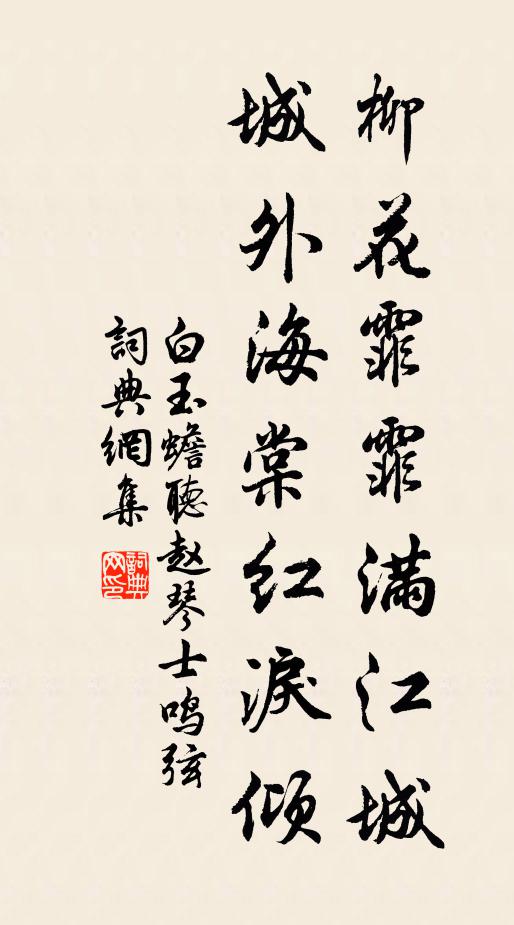 柳花霏霏满江城
城外海棠红淚傾
白玉蟾聽赵琴士鸣弦
詞典網集
詞典网印